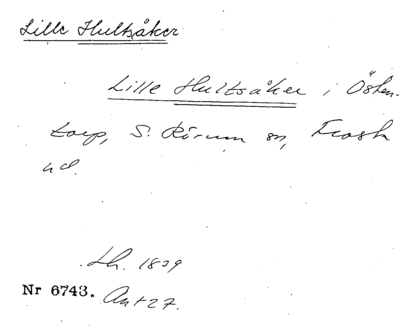 Lille Hultsåker
Lille Hultsåker i Östen-
torp, S. Rörum sn, Frosta
hd.
Lh. 1839
Nr 6743. Ant 27.